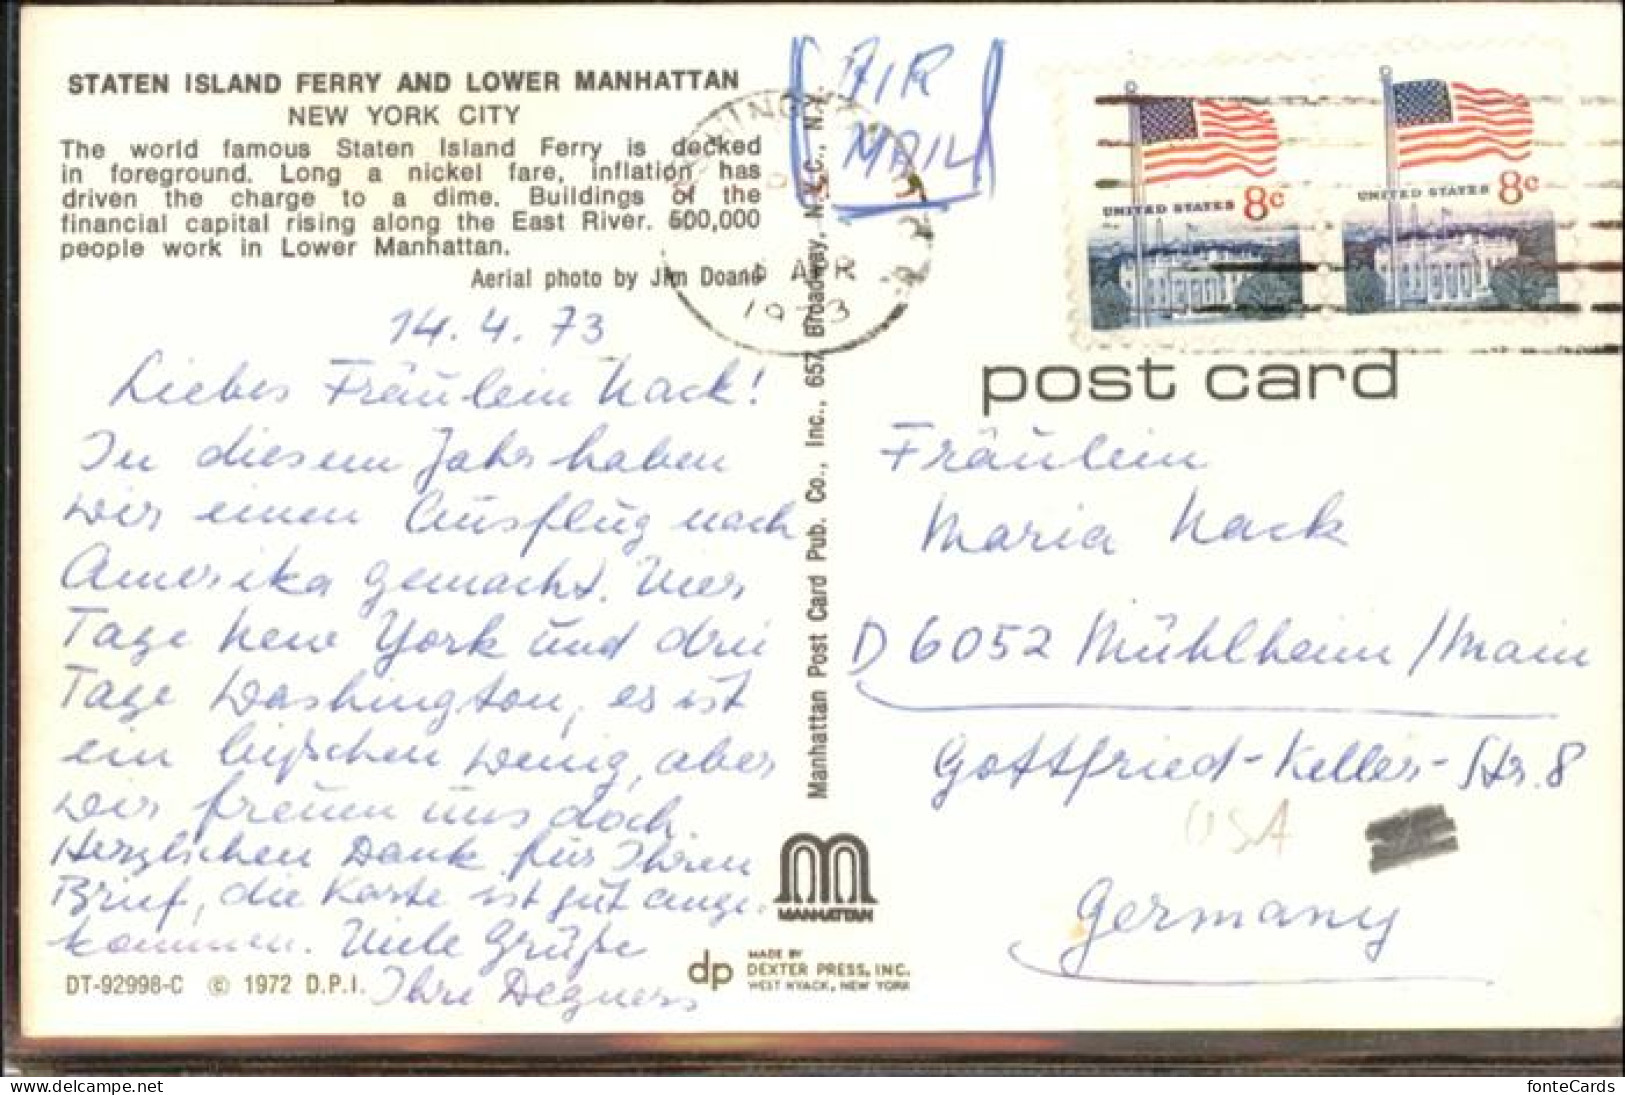 STATEN ISLAND FERRY AND LOWER MANHATTAN
NEW YORK CITY
The world famous Staten Island Ferry is docked
in foreground. Long a nickel fare, inflation has
driven the charge to a dime. Buildings of the
financial capital rising along the East River. 600,000
people work in Lower Manhattan.
Aerial photo by Jim Doane
14.4.73
Liebes Fräulein Nack!
In diesem Jahr haben
wir einen Ausflug nach
Amerika gemacht. Vier
Tage New York und drei
Tage Washington, es ist
ein bißchen wenig, aber
wir freuen uns doch.
Herzlichen Dank für Ihren
Brief, die Karte ist gut ange-
kommen. Viele Grüße
Ihre Degners
DT-92998-C © 1972 D.P.I.
Manhattan Post Card Pub. Co., Inc., 657 Broadway, N.Y.C., N.Y.
MANHATTAN
dp MADE BY
DEXTER PRESS, INC.
WEST NYACK, NEW YORK
AIR
MAIL
APR
1973
UNITED STATES 8c
UNITED STATES 8c
post card
Fräulein
Maria Nack
D 6052 Mühlheim/Main
Gottfried-Keller-Str. 8
USA
Germany
fonteCards
www.delcampe.net